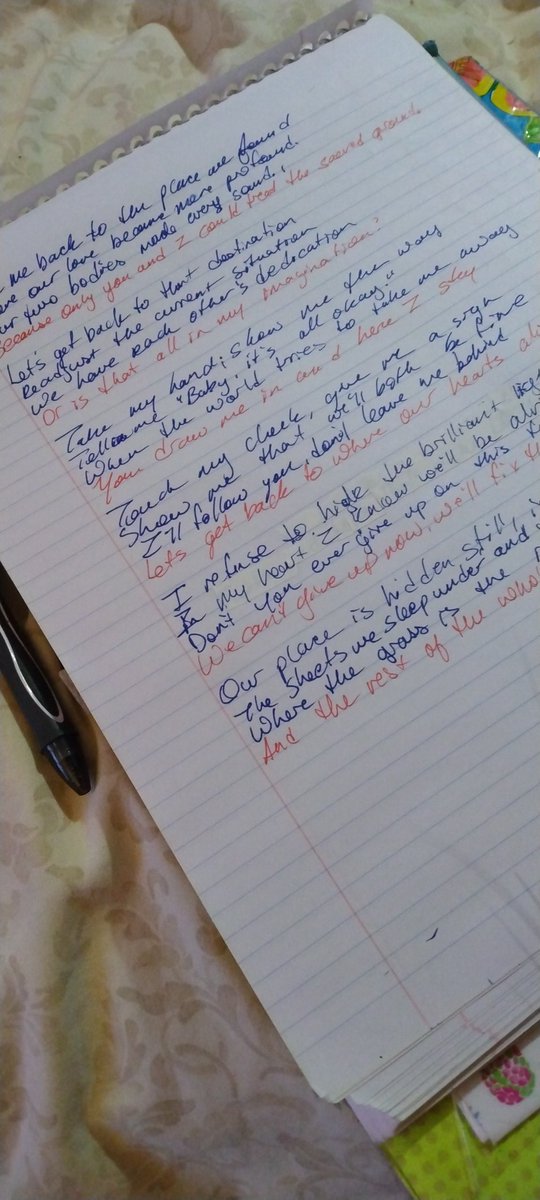 me back to the place we found
our love became more profound.
two bodies made every sound.
Because only you and I could tread the sacred ground.
Let's get back to that destination
Readjust the current situation
We have each other's dedication
Or is that all in my imagination?
Take my hand, show me the way
Tell me "Baby, it's all okay."
When the world tries to take me away
You draw me in and here I stay
Touch my cheek, give me a sign
Show me that we'll both be fine
I'll follow you, don't leave me behind
Lets get back to where our hearts
I refuse to hide the brilliant
In my heart I know we'll be
Don't you ever give up on this
We can't give up now, we'll fix
Our place is hidden still,
The sheets we sleep under and
Where the grass is the
And the rest of the